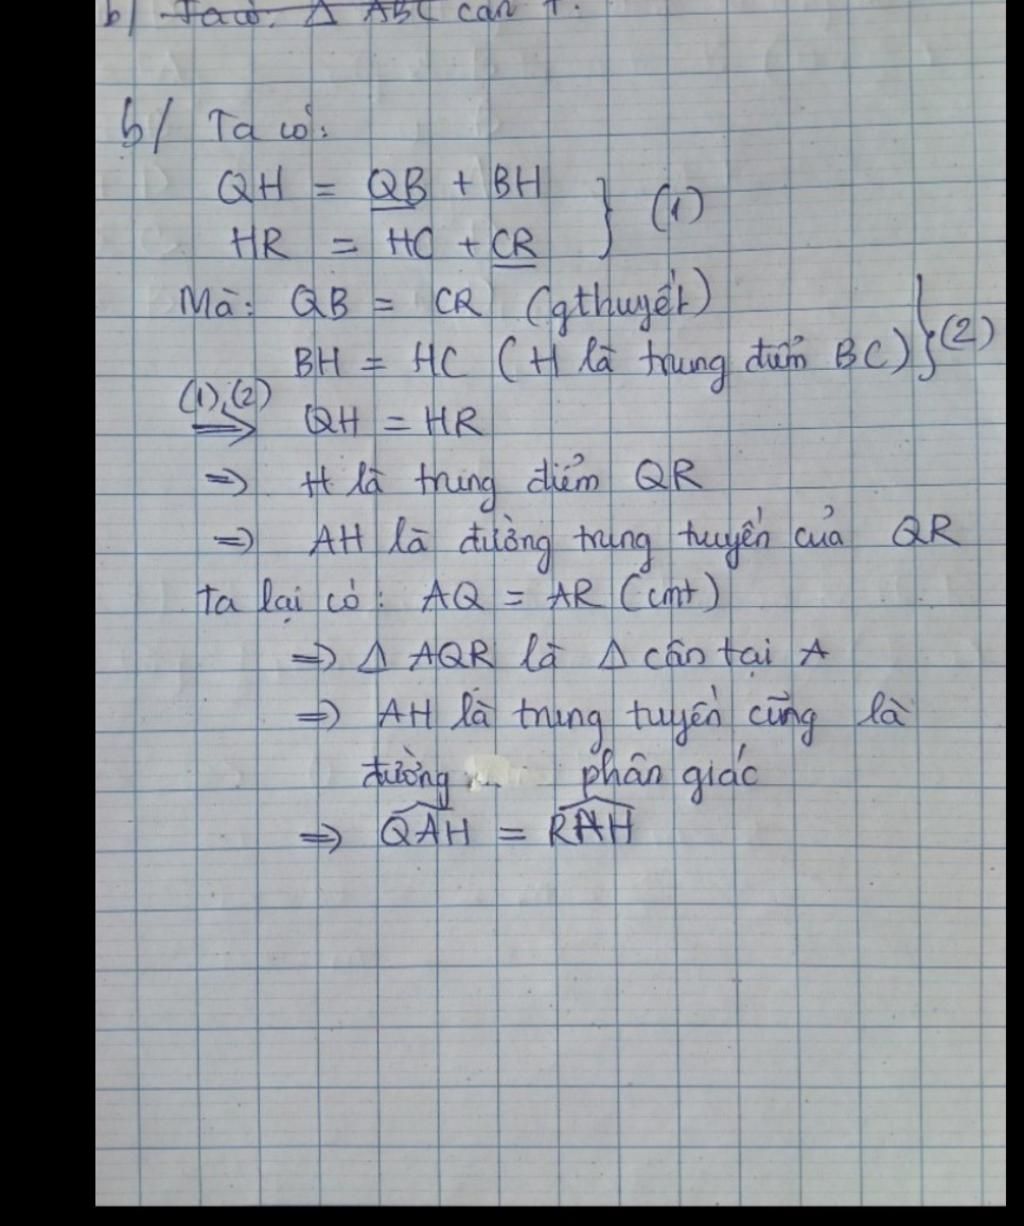 b/ Ta có: Δ ABC cân
b/ Ta có:
QH = QB + BH
HR = HC + CR } (1)
Mà: QB = CR (gthuyết)
BH = HC (H là trung điểm BC) } (2)
(1),(2)
=> QH = HR
=> H là trung điểm QR
=> AH là đường trung tuyến của QR
ta lại có: AQ = AR (cmt)
=> Δ AQR là Δ cân tại A
=> AH là trung tuyến cũng là
đường phân giác
=> \widehat{QAH} = \widehat{RAH}